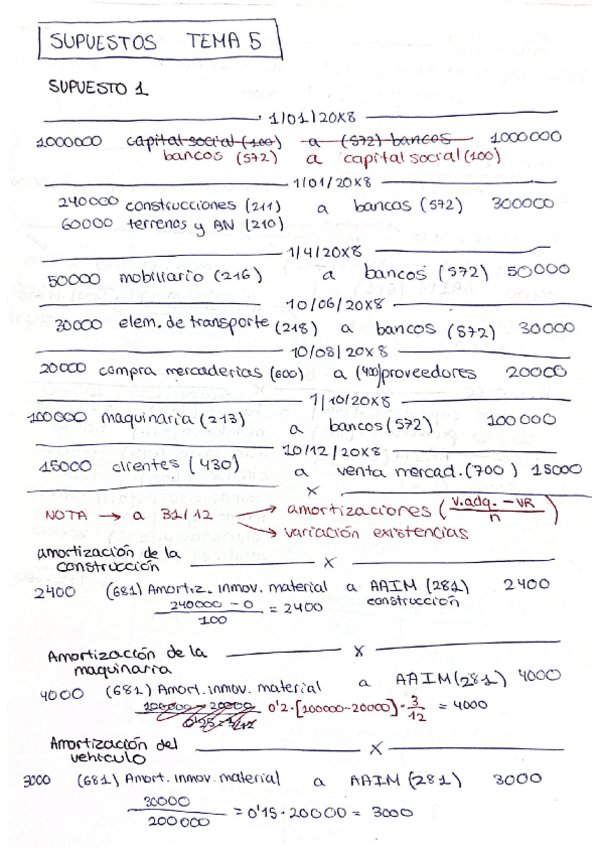 SUPUESTOS TEMA 5
SUPUESTO 1
1/01/20X8
1000000 capital social (100) a (572) bancos 1000000
bancos (572) a capital social (100)
1/01/20X8
240000 construcciones (211) a bancos (572) 300000
60000 terrenos y BN (210)
1/4/20X8
50000 mobiliario (216) a bancos (572) 50000
10/06/20X8
30000 elem. de transporte (218) a bancos (572) 30000
10/08/20X8
20000 compra mercaderias (600) a (400) proveedores 20000
1/10/20X8
100000 maquinaria (213) a bancos (572) 100000
10/12/20X8
15000 clientes (430) a venta mercad. (700) 15000
X
NOTA → a 31/12 → amortizaciones (v.adq. - VR / n)
→ variación existencias
amortización de la
construcción X
2400 (681) Amortiz. inmov. material a AAIM (281) 2400
construcción
240000 - 0 / 100 = 2400
Amortización de la X
maquinaria
4000 (681) Amort. inmov. material a AAIM (281) 4000
100000 - 20000 0'2·[100000-20000]·3/12 = 4000
Amortización del X
vehiculo
3000 (681) Amort. inmov. material a AAIM (281) 3000
30000 / 200000 = 0'15·20000 = 3000